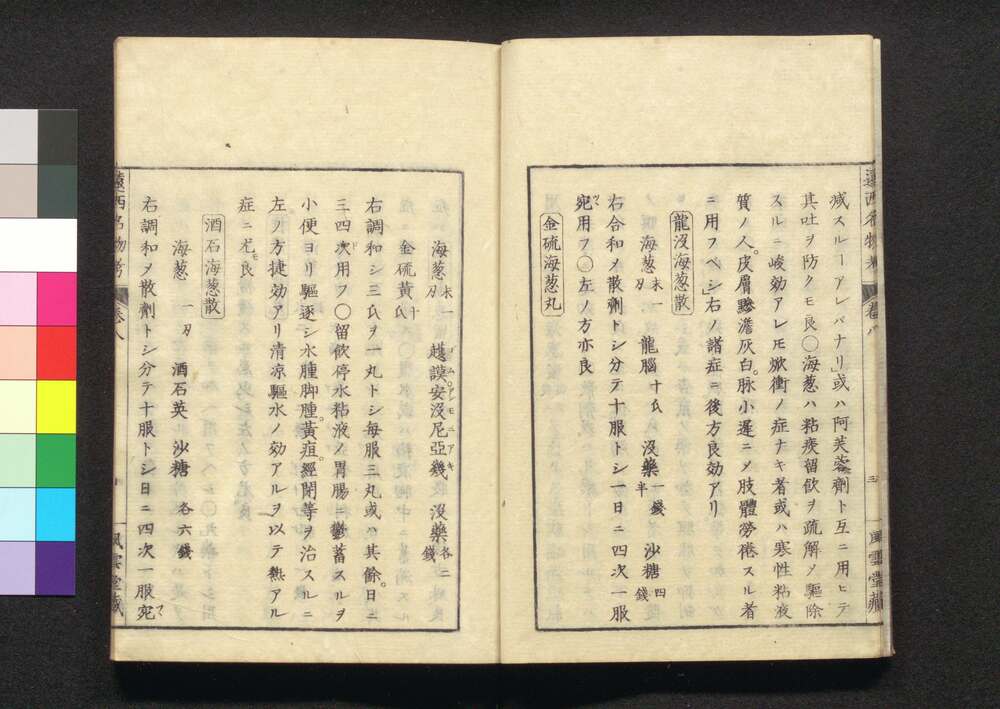 遠西名物考
卷八
三
風雲堂藏
減スルーアレバナリ」或ハ阿芙蓉劑ト互ニ用ヒテ
其吐ヲ防クモ良〇海葱ハ粘痰留飲ヲ疏解〆驅除
スルニ峻効アレ𪜈焮衝ノ症ナキ者或ハ寒性粘液
質ノ人。皮膚黲澹灰白。脉小遲ニ〆肢體勞倦スル者
ニ用フベシ」右ノ諸症ニ後方良効アリ
龍沒海葱散
海葱 末一刄 龍腦 十瓜 沒藥 一錢半 沙糖 四錢
右合和〆散劑トシ分テ十服トシ一日ニ四次一服
宛用フ〇左ノ方亦良
金硫海葱丸
海葱 末一刄 護謨安沒尼亞幾 沒藥 各二錢
金硫黃 十瓜
右調和シ三瓜ヲ一丸トシ每服三丸或ハ其餘。日ニ
三四次用フ〇留飲停水粘液ノ胃腸ニ鬱蓄スルヲ
小便ヨリ驅逐シ水腫脚腫。黃疸。經閉等ヲ治スルニ
左ノ方捷効アリ清凉驅水ノ効アルヲ以テ熱アル
症ニ尤良
酒石海葱散
海葱 一刄 酒石英 沙糖 各六錢
右調和〆散劑トシ分テ十服トシ日ニ四次一服宛
遠西名物考
卷八
風雲堂藏